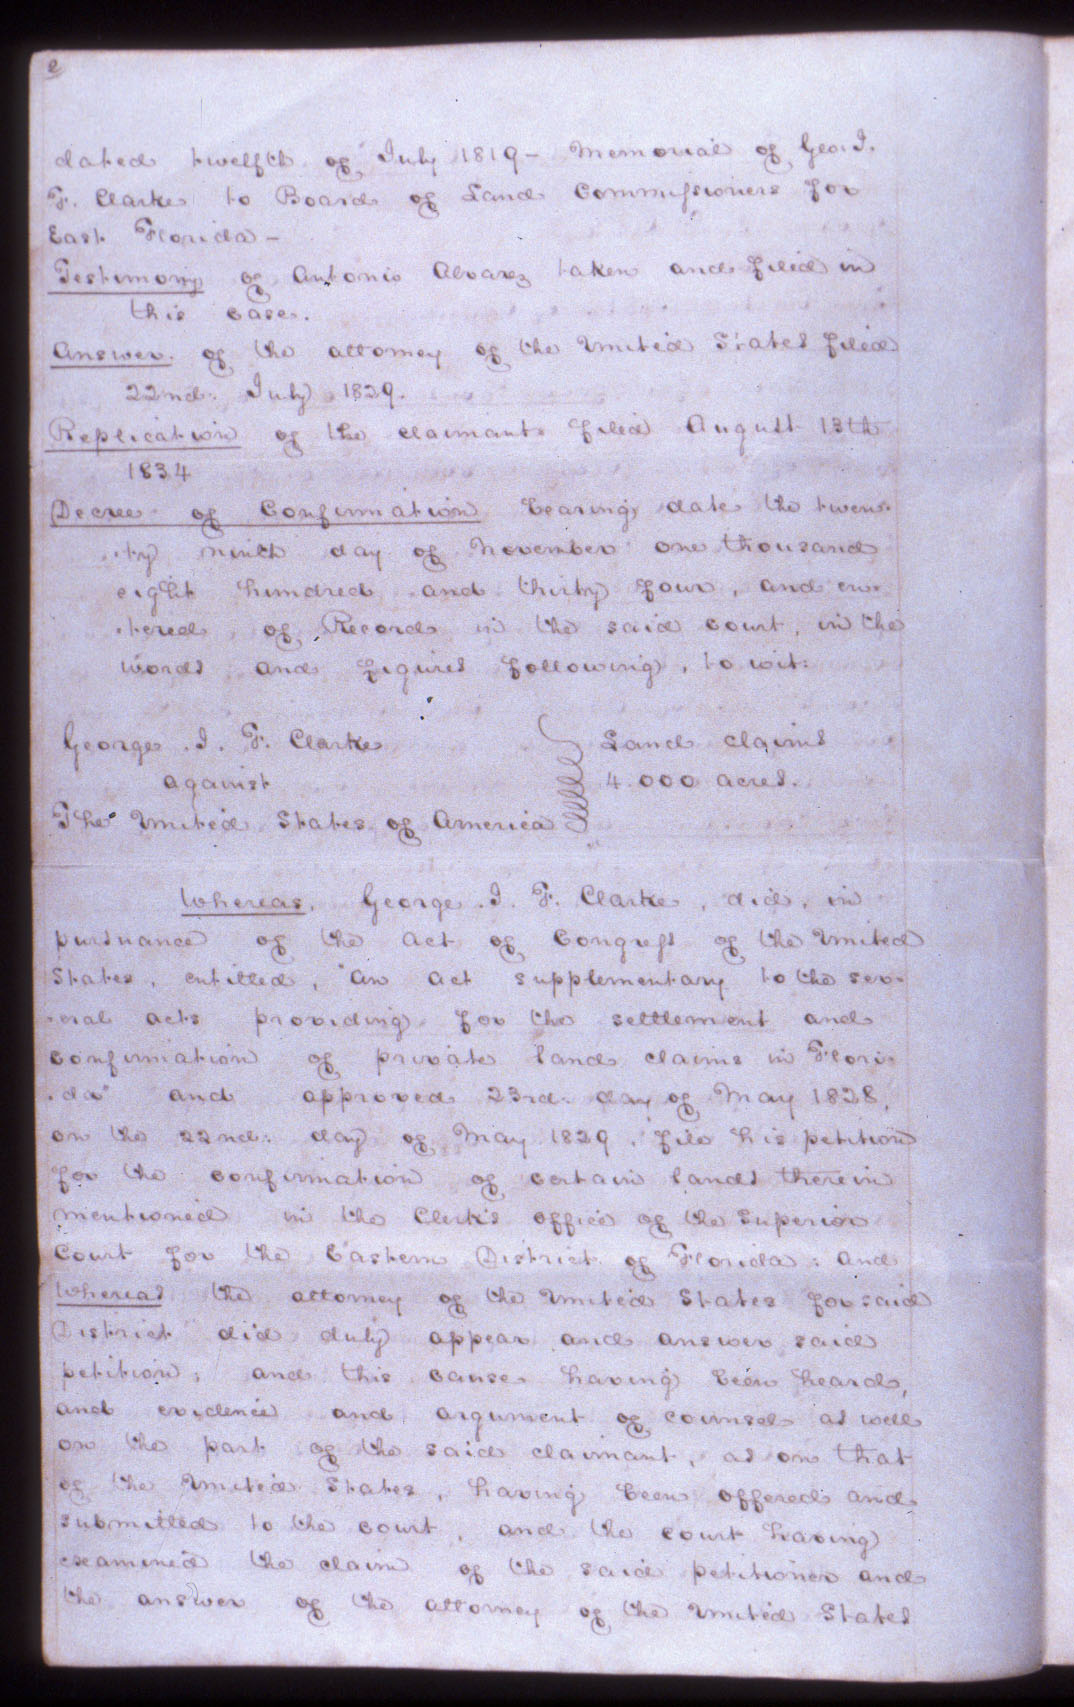 2
dated twelfth of July 1819 - Memorial of Geo. I.
F. Clarke to Board of Land Commissioners for
East Florida -
Testimony of Antonio Alvarez taken and filed in
this case.
Answer of the attorney of the United States filed
22nd. July 1829.
Replication of the claimant filed August 13th
1834
Decree of Confirmation bearing date the twen-
-ty ninth day of November one thousand
eight hundred and thirty four, and en-
-tered of Record in the said court, in the
words and figures following, to wit:
George I. F. Clarke
against
The United States of America
Land claims
4.000 acres.
Whereas, George I. F. Clarke, did, in
pursuance of the act of Congress of the United
States, entitled, "an act supplementary to the sev-
-eral acts providing for the settlement and
confirmation of private land claims in Flori-
-da" and approved 23rd. day of May 1828,
on the 22nd. day of May 1829, file his petition
for the confirmation of certain lands therein
mentioned in the Clerk's office of the Superior
Court for the Eastern District of Florida: and
Whereas the attorney of the United States for said
District did duly appear and answer said
petition; and this cause having been heard,
and evidence and argument of counsel as well
on the part of the said claimant, as on that
of the United States, having been offered and
submitted to the court, and the court having
examined the claim of the said petitioner and
the answer of the attorney of the United States